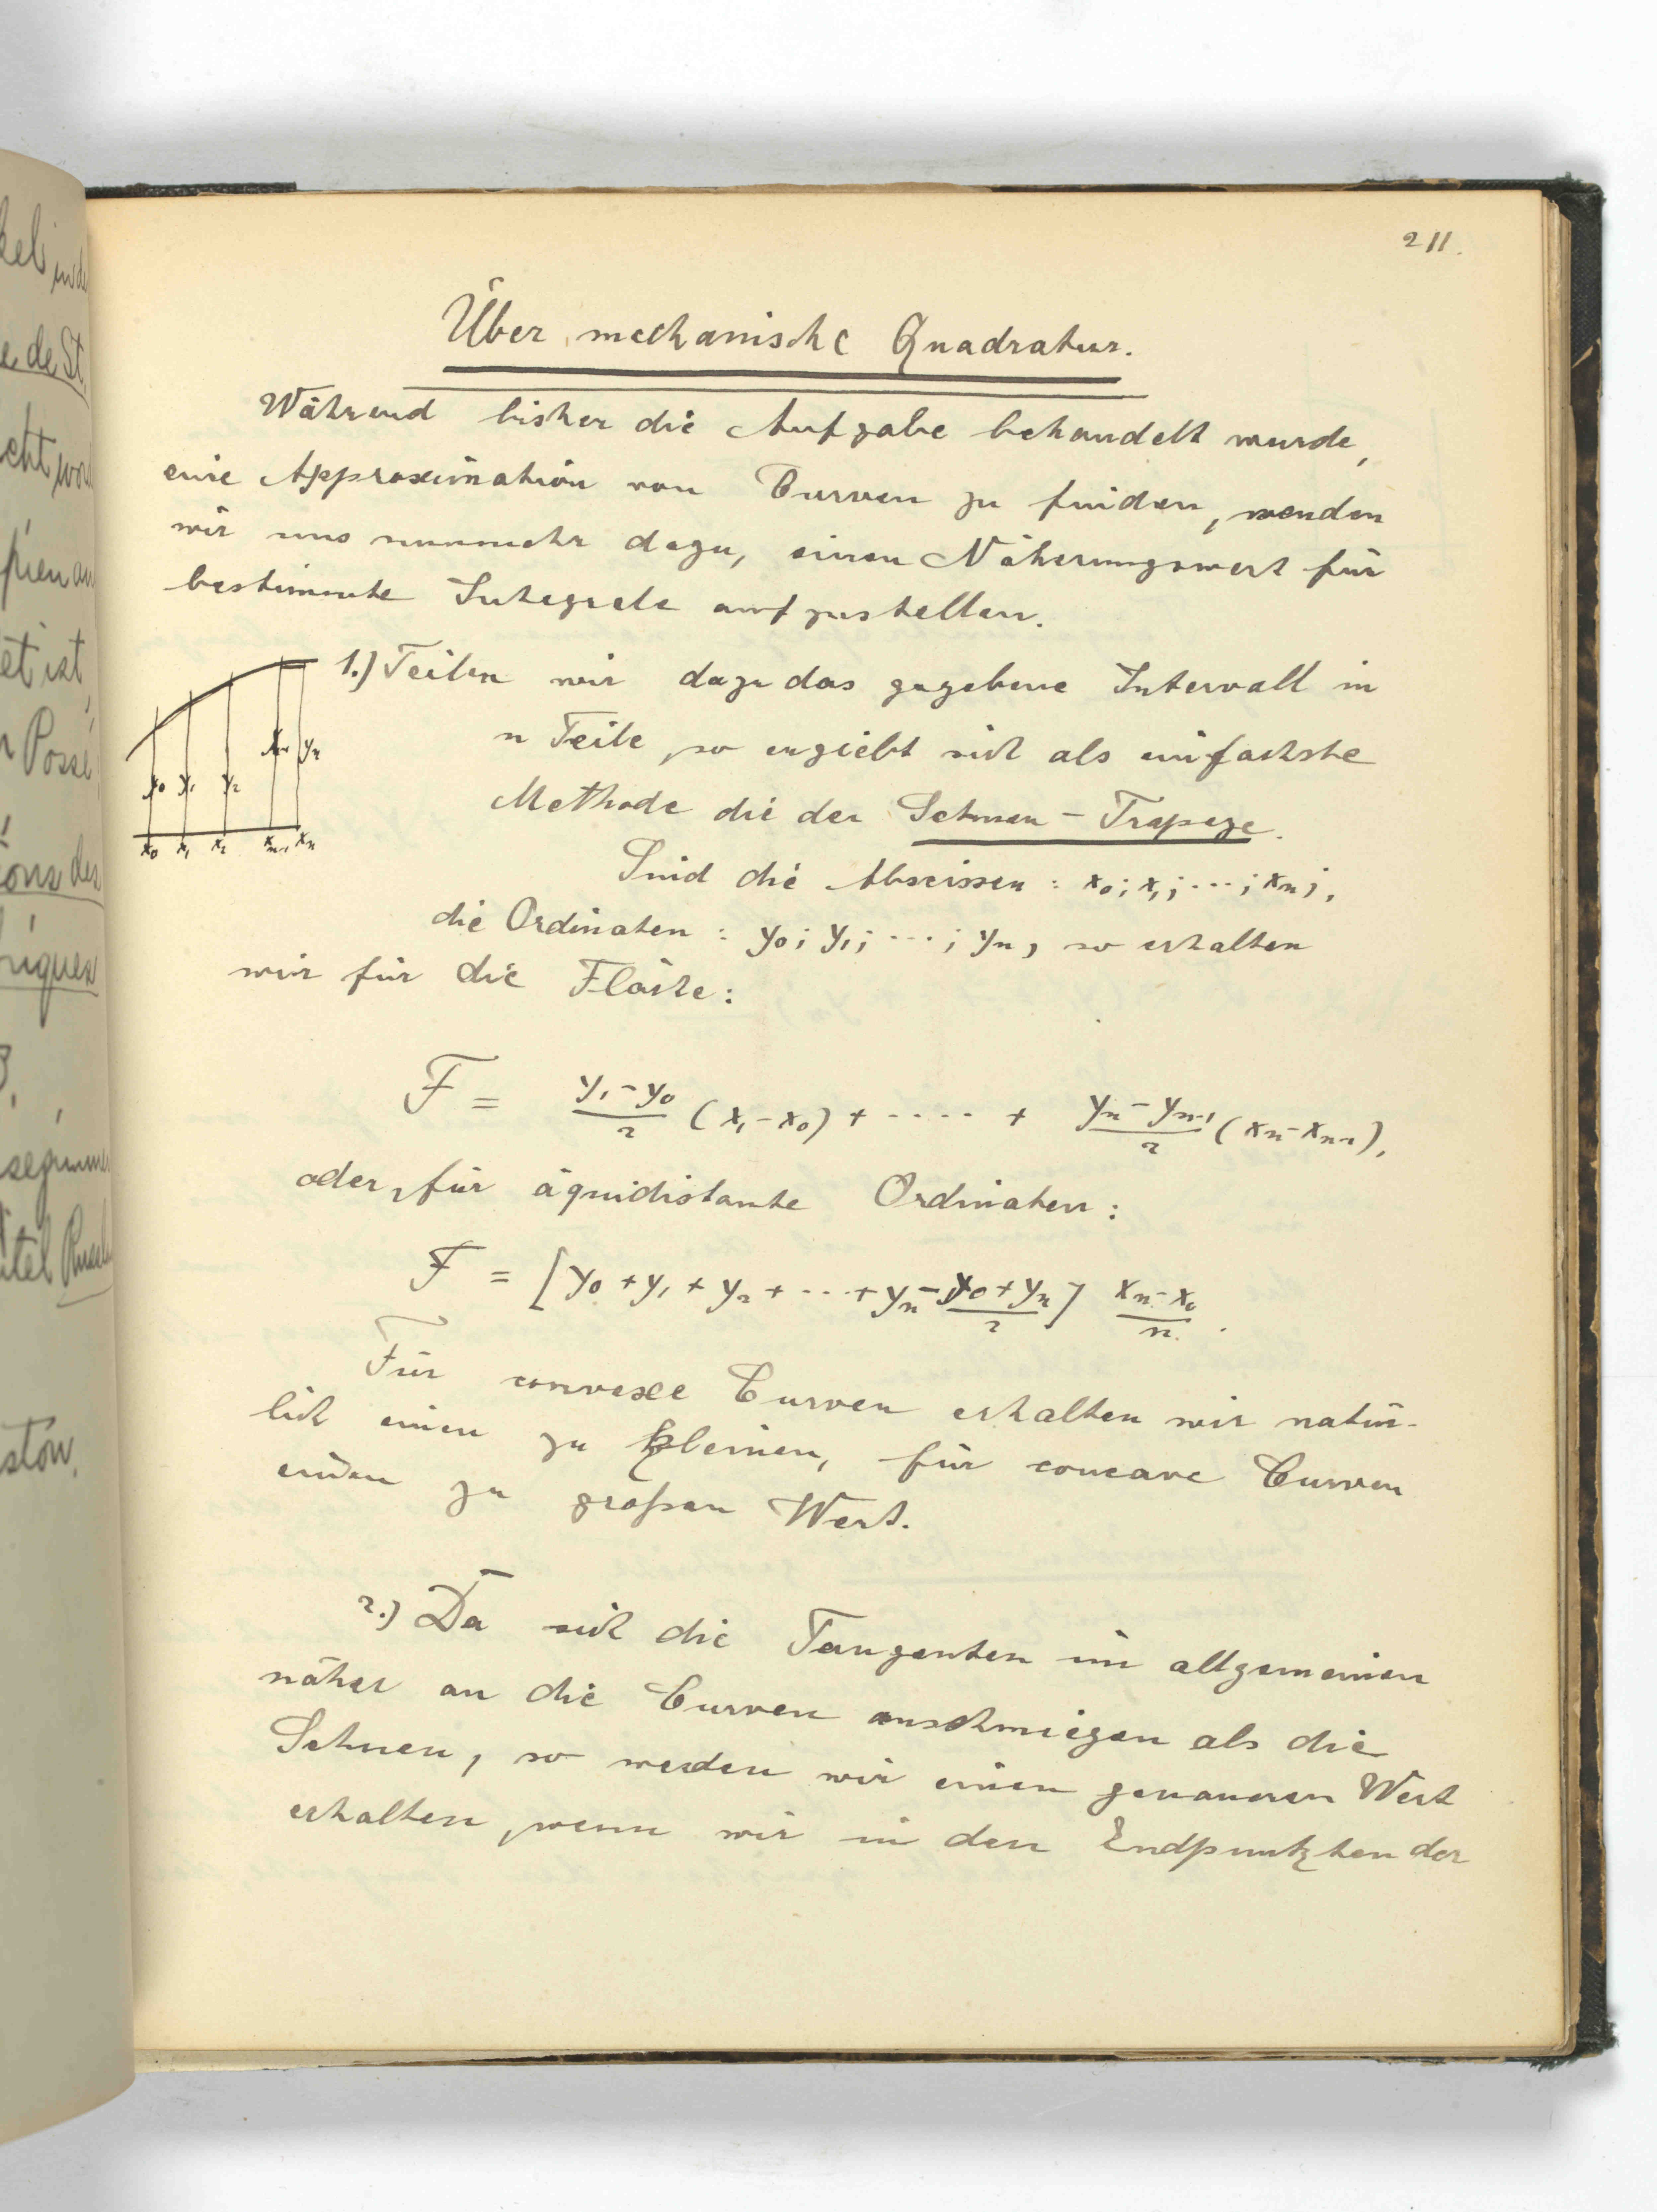 211.
Über mechanische Quadratur.
Während bisher die Aufgabe behandelt wurde,
eine Approximation von Curven zu finden, wenden
wir uns nunmehr dazu, einen Näherungswert für
bestimmte Integrale aufzustellen.
1.) Teilen wir dazu das gegebene Intervall in
n Teile, so ergiebt sich als einfachste
Methode die der Sehnen-Trapeze.
y₀ y₁ y₂ yₙ₋₁ yₙ
x₀ x₁ x₂ xₙ₋₁ xₙ
Sind die Abscissen: x₀; x₁; ...; xₙ;,
die Ordinaten: y₀; y₁; ...; yₙ, so erhalten
wir für die Fläche:
F = (y₁-y₀)/2 (x₁-x₀) + ..... + (yₙ-yₙ₋₁)/2 (xₙ-xₙ₋₁),
oder, für äquidistante Ordinaten:
F = [y₀+y₁+y₂+...+yₙ-(y₀+yₙ)/2] (xₙ-x₀)/n.
Für convexe Curven erhalten wir natür-
lich einen zu kleinen, für concave Curven
einen zu großen Wert.
2.) Da sich die Tangenten im allgemeinen
näher an die Curven anschmiegen als die
Sehnen, so werden wir einen genaueren Wert
erhalten, wenn wir in den Endpunkten der
kel in de
e de St.
cht wor
pien an
et ist,
r Possé
ions des
riques
stow.